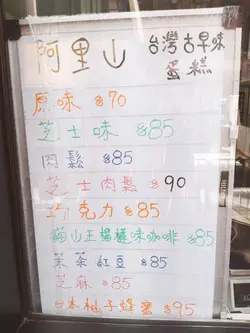 阿里山 台灣古早味
蛋糕
原味 $70
芝士味 $85
肉鬆 $85
芝士肉鬆 $90
巧克力 $85
貓山王榴槤味咖啡 $85
抹茶紅豆 $85
芝麻 $85
日本柚子蜂蜜 $95